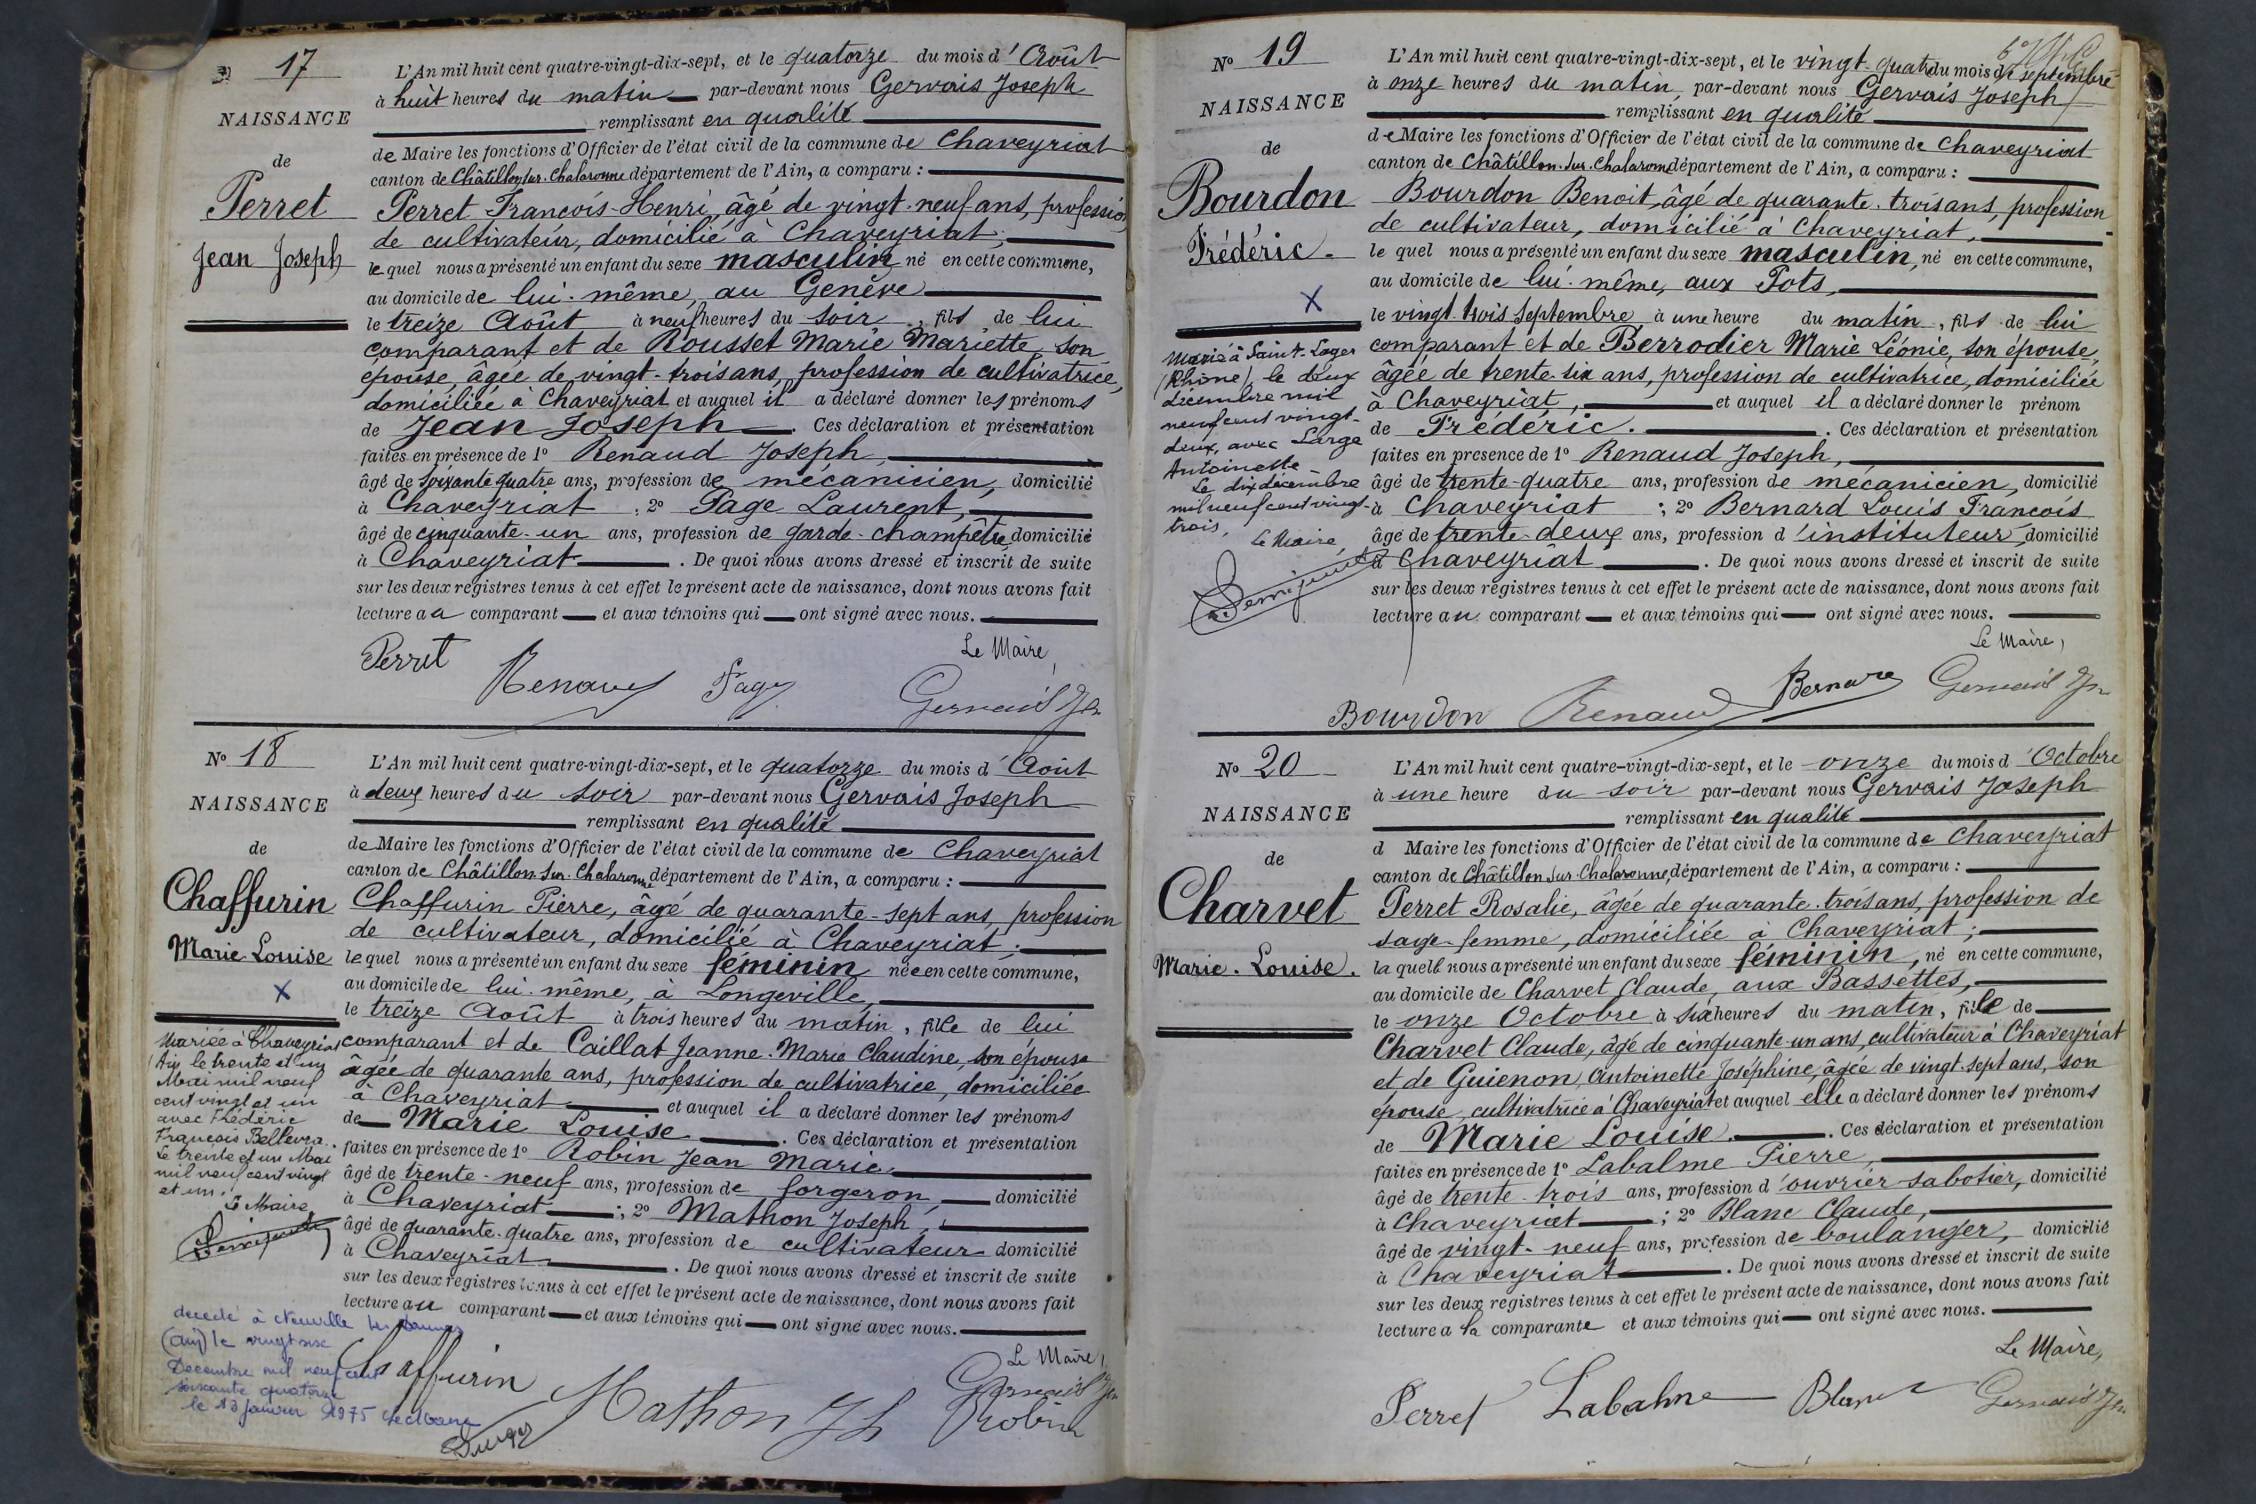 N° 17
NAISSANCE
de
Perret
Jean Joseph
L'An mil huit cent quatre-vingt-dix-sept, et le quatorze du mois d'Août
à huit heures du matin par-devant nous Gervais Joseph
remplissant en qualité
de Maire les fonctions d'Officier de l'état civil de la commune de Chaveyriat
canton de Châtillon sur Chalaronne département de l'Ain, a comparu :
Perret François-Henri, âgé de vingt-neuf ans, profession
de cultivateur, domicilié à Chaveyriat,
lequel nous a présenté un enfant du sexe masculin né en cette commune,
au domicile de lui-même, au Genève
le treize Août à neuf heures du soir, fils de lui
comparant et de Rousset Marie Mariette, son
épouse, âgée de vingt-trois ans, profession de cultivatrice,
domiciliée à Chaveyriat et auquel il a déclaré donner les prénoms
de Jean Joseph. Ces déclaration et présentation
faites en présence de 1° Renaud Joseph,
âgé de soixante quatre ans, profession de mécanicien, domicilié
à Chaveyriat ; 2° Page Laurent,
âgé de cinquante-un ans, profession de garde-champêtre, domicilié
à Chaveyriat. De quoi nous avons dressé et inscrit de suite
sur les deux registres tenus à cet effet le présent acte de naissance, dont nous avons fait
lecture au comparant et aux témoins qui ont signé avec nous.
Le Maire,
Perret Renaud Page Gervais Jh
N° 18
NAISSANCE
de
Chaffurin
Marie-Louise
X
Mariée à Chaveyriat
(Ain) le trente et un
Mai mil neuf
cent vingt et un
avec Frédéric
François Bellevra.
Le trente et un Mai
mil neuf cent vingt
et un.
Le Maire
décédé à Neuville les Dames
(Ain) le vingt six
Decembre mil neuf cent
soixante quatorze
le 13 janvier 1975
L'An mil huit cent quatre-vingt-dix-sept, et le quatorze du mois d'Août
à deux heures du soir par-devant nous Gervais Joseph
remplissant en qualité
de Maire les fonctions d'Officier de l'état civil de la commune de Chaveyriat
canton de Châtillon-sur-Chalaronne département de l'Ain, a comparu :
Chaffurin Pierre, âgé de quarante-sept ans, profession
de cultivateur, domicilié à Chaveyriat ;
lequel nous a présenté un enfant du sexe féminin née en cette commune,
au domicile de lui-même, à Longeville,
le treize Août à trois heures du matin, fille de lui
comparant et de Caillat Jeanne-Marie Claudine, son épouse
âgée de quarante ans, profession de cultivatrice, domiciliée
à Chaveyriat et auquel il a déclaré donner les prénoms
de Marie Louise. Ces déclaration et présentation
faites en présence de 1° Robin Jean Marie
âgé de trente-neuf ans, profession de forgeron, domicilié
à Chaveyriat ; 2° Mathon Joseph,
âgé de quarante-quatre ans, profession de cultivateur domicilié
à Chaveyriat. De quoi nous avons dressé et inscrit de suite
sur les deux registres tenus à cet effet le présent acte de naissance, dont nous avons fait
lecture au comparant et aux témoins qui ont signé avec nous.
Le Maire,
Chaffurin Mathon Jh Gervais Jh
Robin
N° 19
NAISSANCE
de
Bourdon
Frédéric.
X
Marié à Saint-Lager
(Rhône) le deux
décembre mil
neuf cent vingt-
deux, avec Large
Antoinette
Le dix décembre
mil neuf cent vingt-
trois,
Le Maire,
L'An mil huit cent quatre-vingt-dix-sept, et le vingt-quatre du mois de septembre
à onze heures du matin, par-devant nous Gervais Joseph
remplissant en qualité
de Maire les fonctions d'Officier de l'état civil de la commune de Chaveyriat
canton de Châtillon-sur-Chalaronne département de l'Ain, a comparu :
Bourdon Benoit, âgé de quarante-trois ans, profession
de cultivateur, domicilié à Chaveyriat,
lequel nous a présenté un enfant du sexe masculin, né en cette commune,
au domicile de lui-même, aux Pots,
le vingt-trois Septembre à une heure du matin, fils de lui
comparant et de Berrodier Marie Léonie, son épouse,
âgée de trente-six ans, profession de cultivatrice, domiciliée
à Chaveyriat, et auquel il a déclaré donner le prénom
de Frédéric. Ces déclaration et présentation
faites en présence de 1° Renaud Joseph,
âgé de trente-quatre ans, profession de mécanicien, domicilié
à Chaveyriat ; 2° Bernard Louis François
âgé de trente-deux ans, profession d'instituteur, domicilié
à Chaveyriat. De quoi nous avons dressé et inscrit de suite
sur les deux registres tenus à cet effet le présent acte de naissance, dont nous avons fait
lecture au comparant et aux témoins qui ont signé avec nous.
Le Maire,
Bourdon Renaud Bernard Gervais Jh
N° 20
NAISSANCE
de
Charvet
Marie-Louise.
L'An mil huit cent quatre-vingt-dix-sept, et le onze du mois d'Octobre
à une heure du soir par-devant nous Gervais Joseph
remplissant en qualité
d Maire les fonctions d'Officier de l'état civil de la commune de Chaveyriat
canton de Châtillon-sur-Chalaronne, département de l'Ain, a comparu :
Perret Rosalie, âgée de quarante-trois ans, profession de
sage-femme, domiciliée à Chaveyriat ;
laquelle nous a présenté un enfant du sexe féminin, né en cette commune,
au domicile de Charvet Claude, aux Bassettes,
le onze Octobre à six heures du matin, fille de
Charvet Claude, âgé de cinquante-un ans, cultivateur à Chaveyriat
et de Guienon Antoinette Joséphine, âgée de vingt-sept ans, son
épouse, cultivatrice à Chaveyriat et auquel elle a déclaré donner les prénoms
de Marie Louise. Ces déclaration et présentation
faites en présence de 1° Labalme Pierre,
âgé de trente-trois ans, profession d'ouvrier-sabotier, domicilié
à Chaveyriat ; 2° Blanc Claude,
âgé de vingt-neuf ans, profession de boulanger, domicilié
à Chaveyriat. De quoi nous avons dressé et inscrit de suite
sur les deux registres tenus à cet effet le présent acte de naissance, dont nous avons fait
lecture a la comparante et aux témoins qui ont signé avec nous.
Le Maire,
Perret Labalme Blanc Gervais Jh